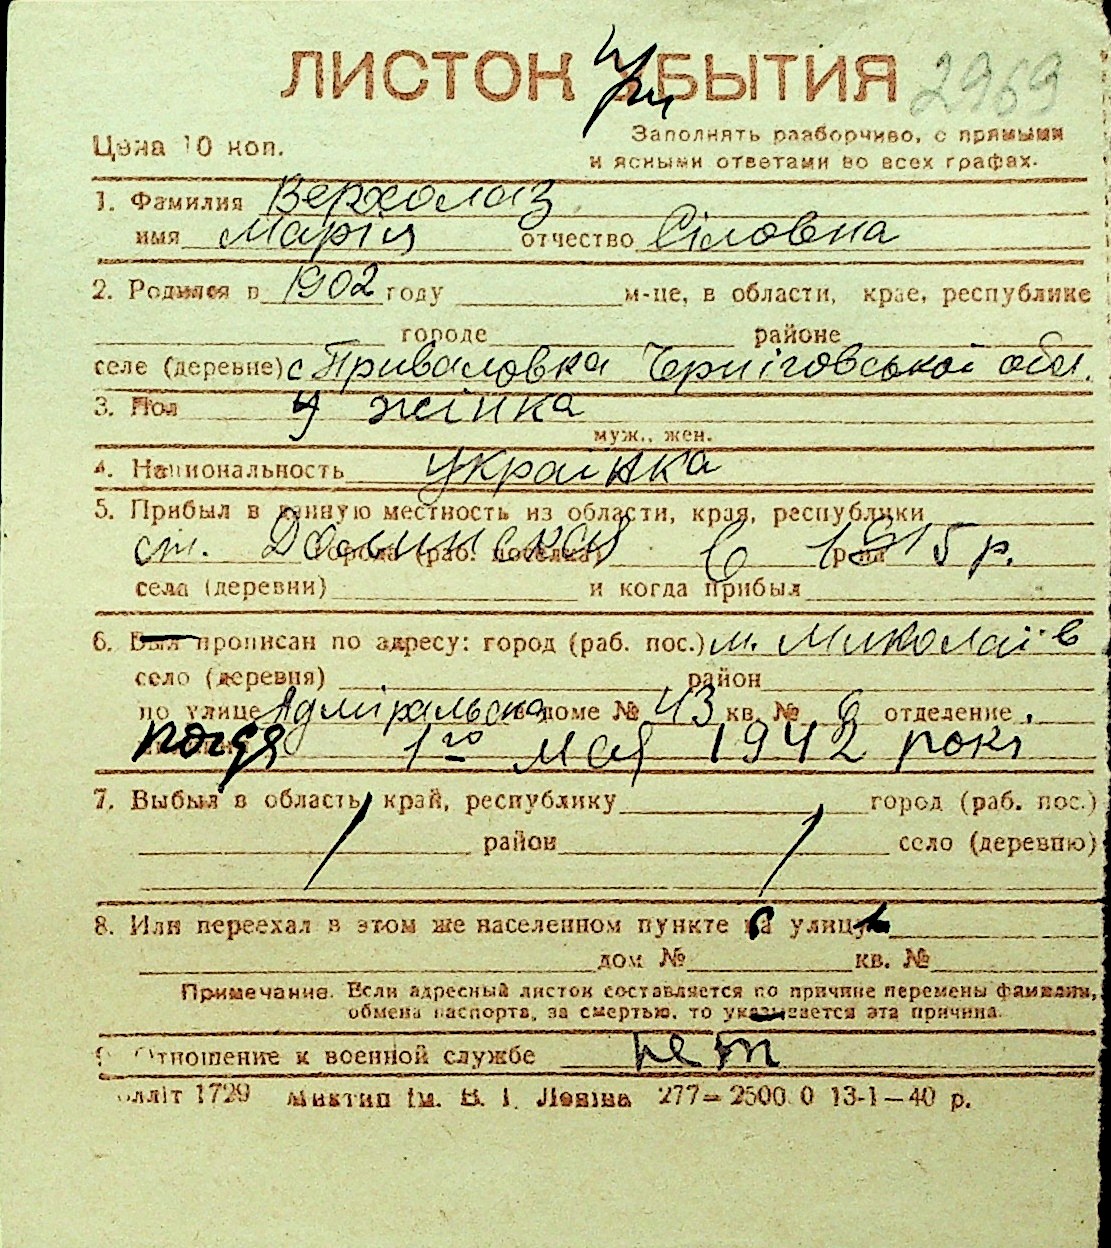 ЛИСТОК УБЫТИЯ 2969
Цена 10 коп.
Заполнять разборчиво, с прямыми
и ясными ответами во всех графах.
1. Фамилия Верхолаз
имя Марія отчество Сіловна
2. Родился в 1902 году м-це, в области, крае, республике
городе районе
селе (деревне) с Приваловка Черніговської обл.
3. Пол жінка
муж., жен.
4. Национальность українка
5. Прибыл в данную местность из области, края, республики
ст. Долинская города (раб. поселка) в 1915 р.
села (деревни) и когда прибыл
6. Был прописан по адресу: город (раб. пос.) м. Миколаїв
село (деревня) район
по улице Адміральска доме № 43 кв. № 6 отделение
когда 1го мая 1942 рокі
7. Выбыл в область, край, республику город (раб. пос.)
район село (деревню)
8. Или переехал в этом же населенном пункте на улицу
дом № кв. №
Примечание. Если адресный листок составляется по причине перемены фамилии,
обмена паспорта, за смертью, то указывается эта причина.
Отношение к военной службе нет
лліт 1729 Миктип ім. В. І. Леніна 277— 2500 0 13-1—40 р.